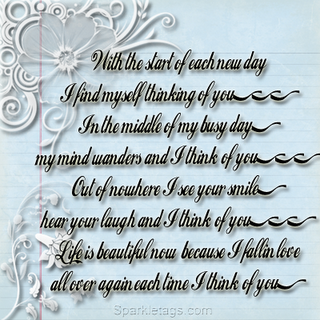 With the start of each new day
I find myself thinking of you
In the middle of my busy day
my mind wanders and I think of you
Out of nowhere I see your smile
hear your laugh and I think of you
Life is beautiful now because I fall in love
all over again each time I think of you
Sparkletags.com